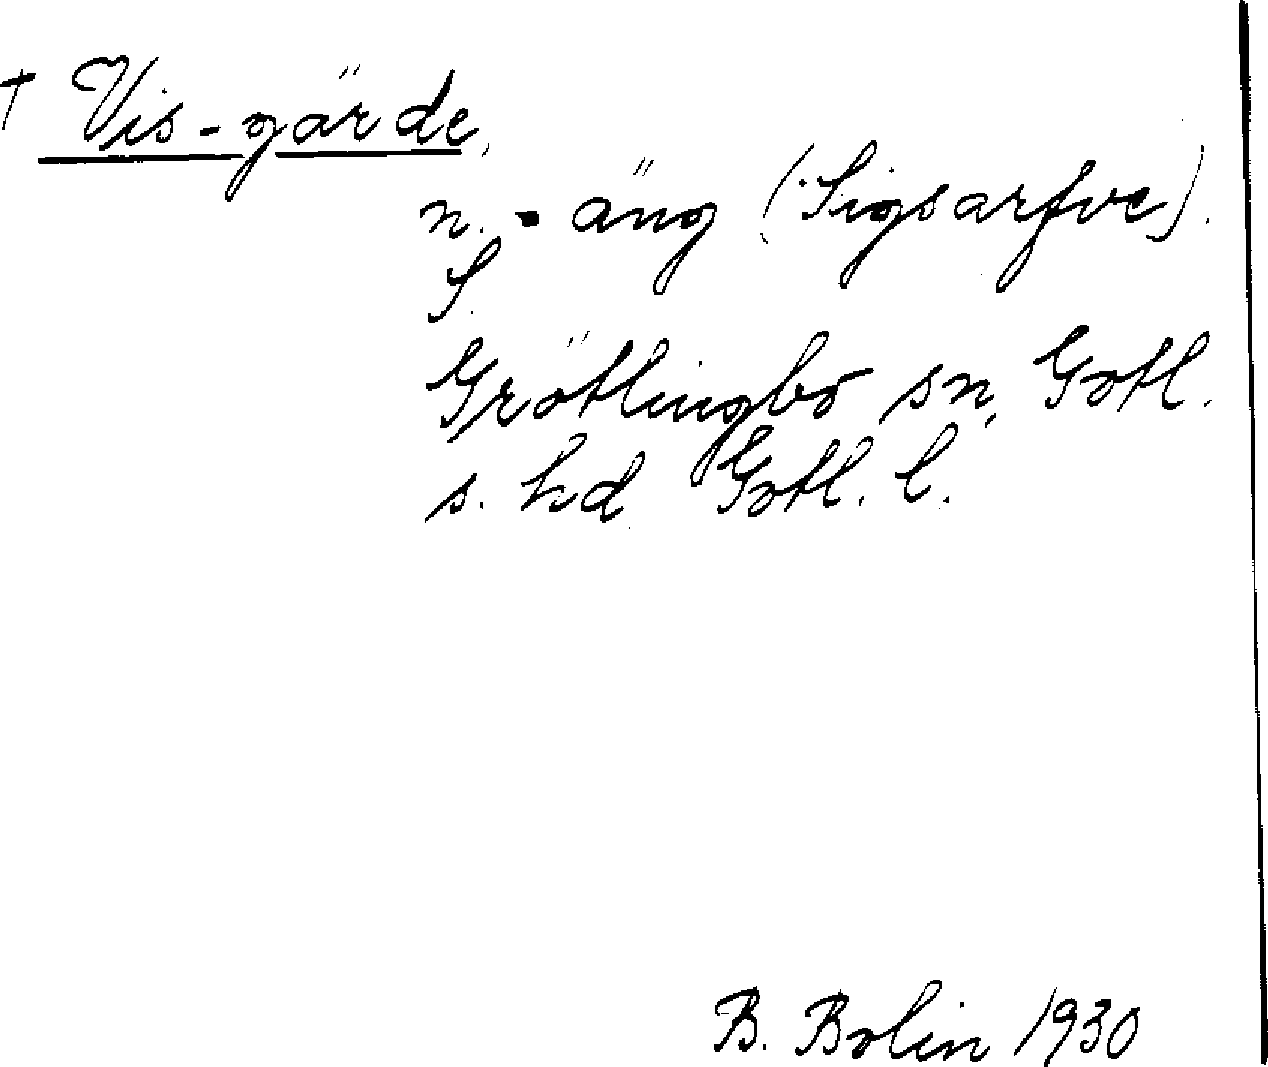 † Vis-gärde,
n. - äng (Sigsarfve).
S.
Grötlingbo sn, Gotl.
s. hd Gotl. l.
B. Bolin 1930